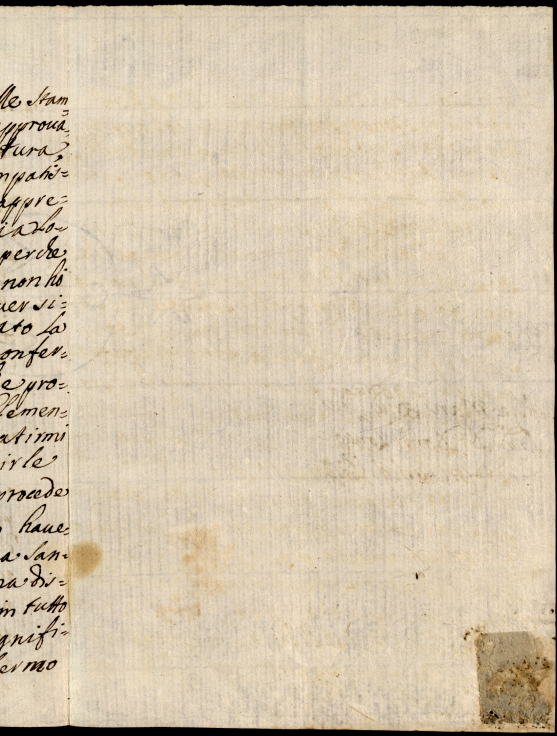 lle stam=
approva=
tura,
mpatis=
appre=
ia do=
perche
non hò
ver si=
ato la
onfer=
e pro=
lemen=
atirmi
irle
procede
haue=
a san=
na dis=
in tutto
gnifi=
fermo